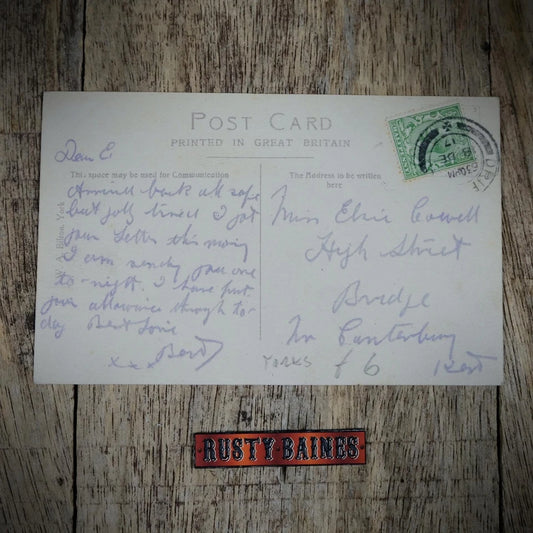 POST CARD
PRINTED IN GREAT BRITAIN
This space may be used for Communication
The Address to be written
here
Dear E.
Arrived back all safe
but jolly tired I got
your letter this morning
I am sending you one
to-night. I have put
your allowance through to-
day Best Love
x x x Bert
Miss Elsie Cowell
High Street
Bridge
Nr Canterbury
Kent
YORKS £6
W. A. Bilton, York
DE
17
RUSTY·BAINES